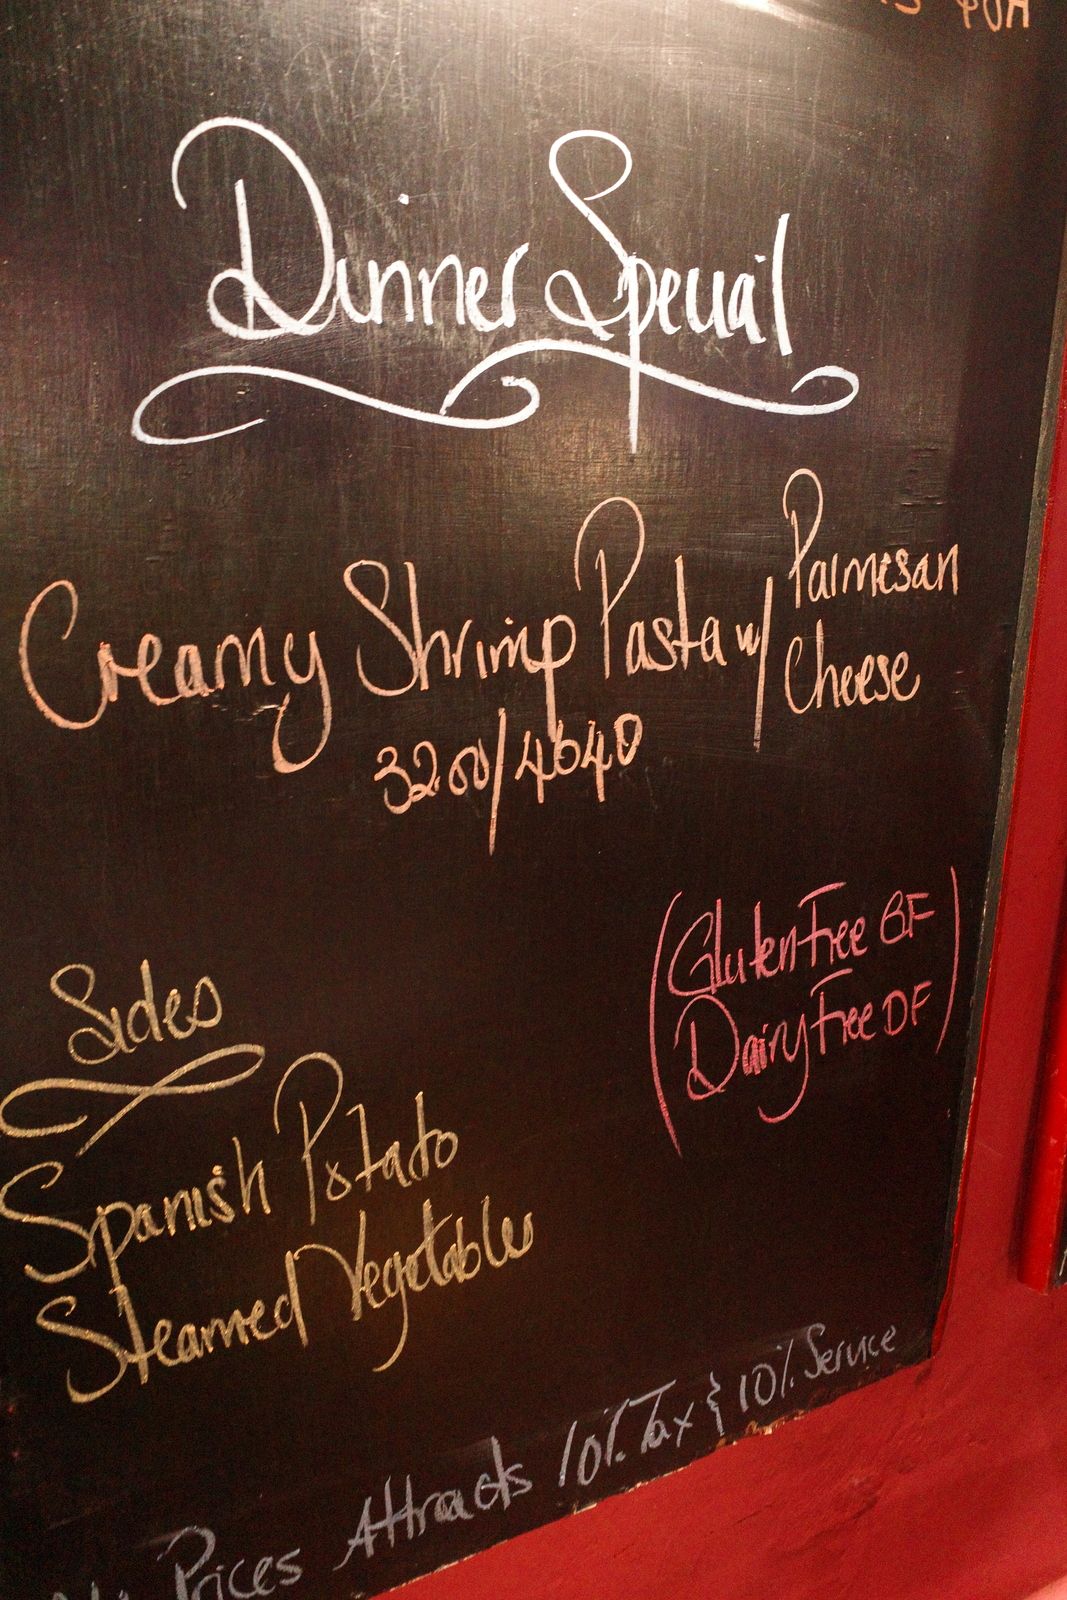 Dinner Special
Creamy Shrimp Pasta w/ Parmesan
Cheese
3200/4640
(Gluten Free GF
Dairy Free DF)
Sides
Spanish Potato
Steamed Vegetables
Prices Attracts 10% Tax & 10% Service